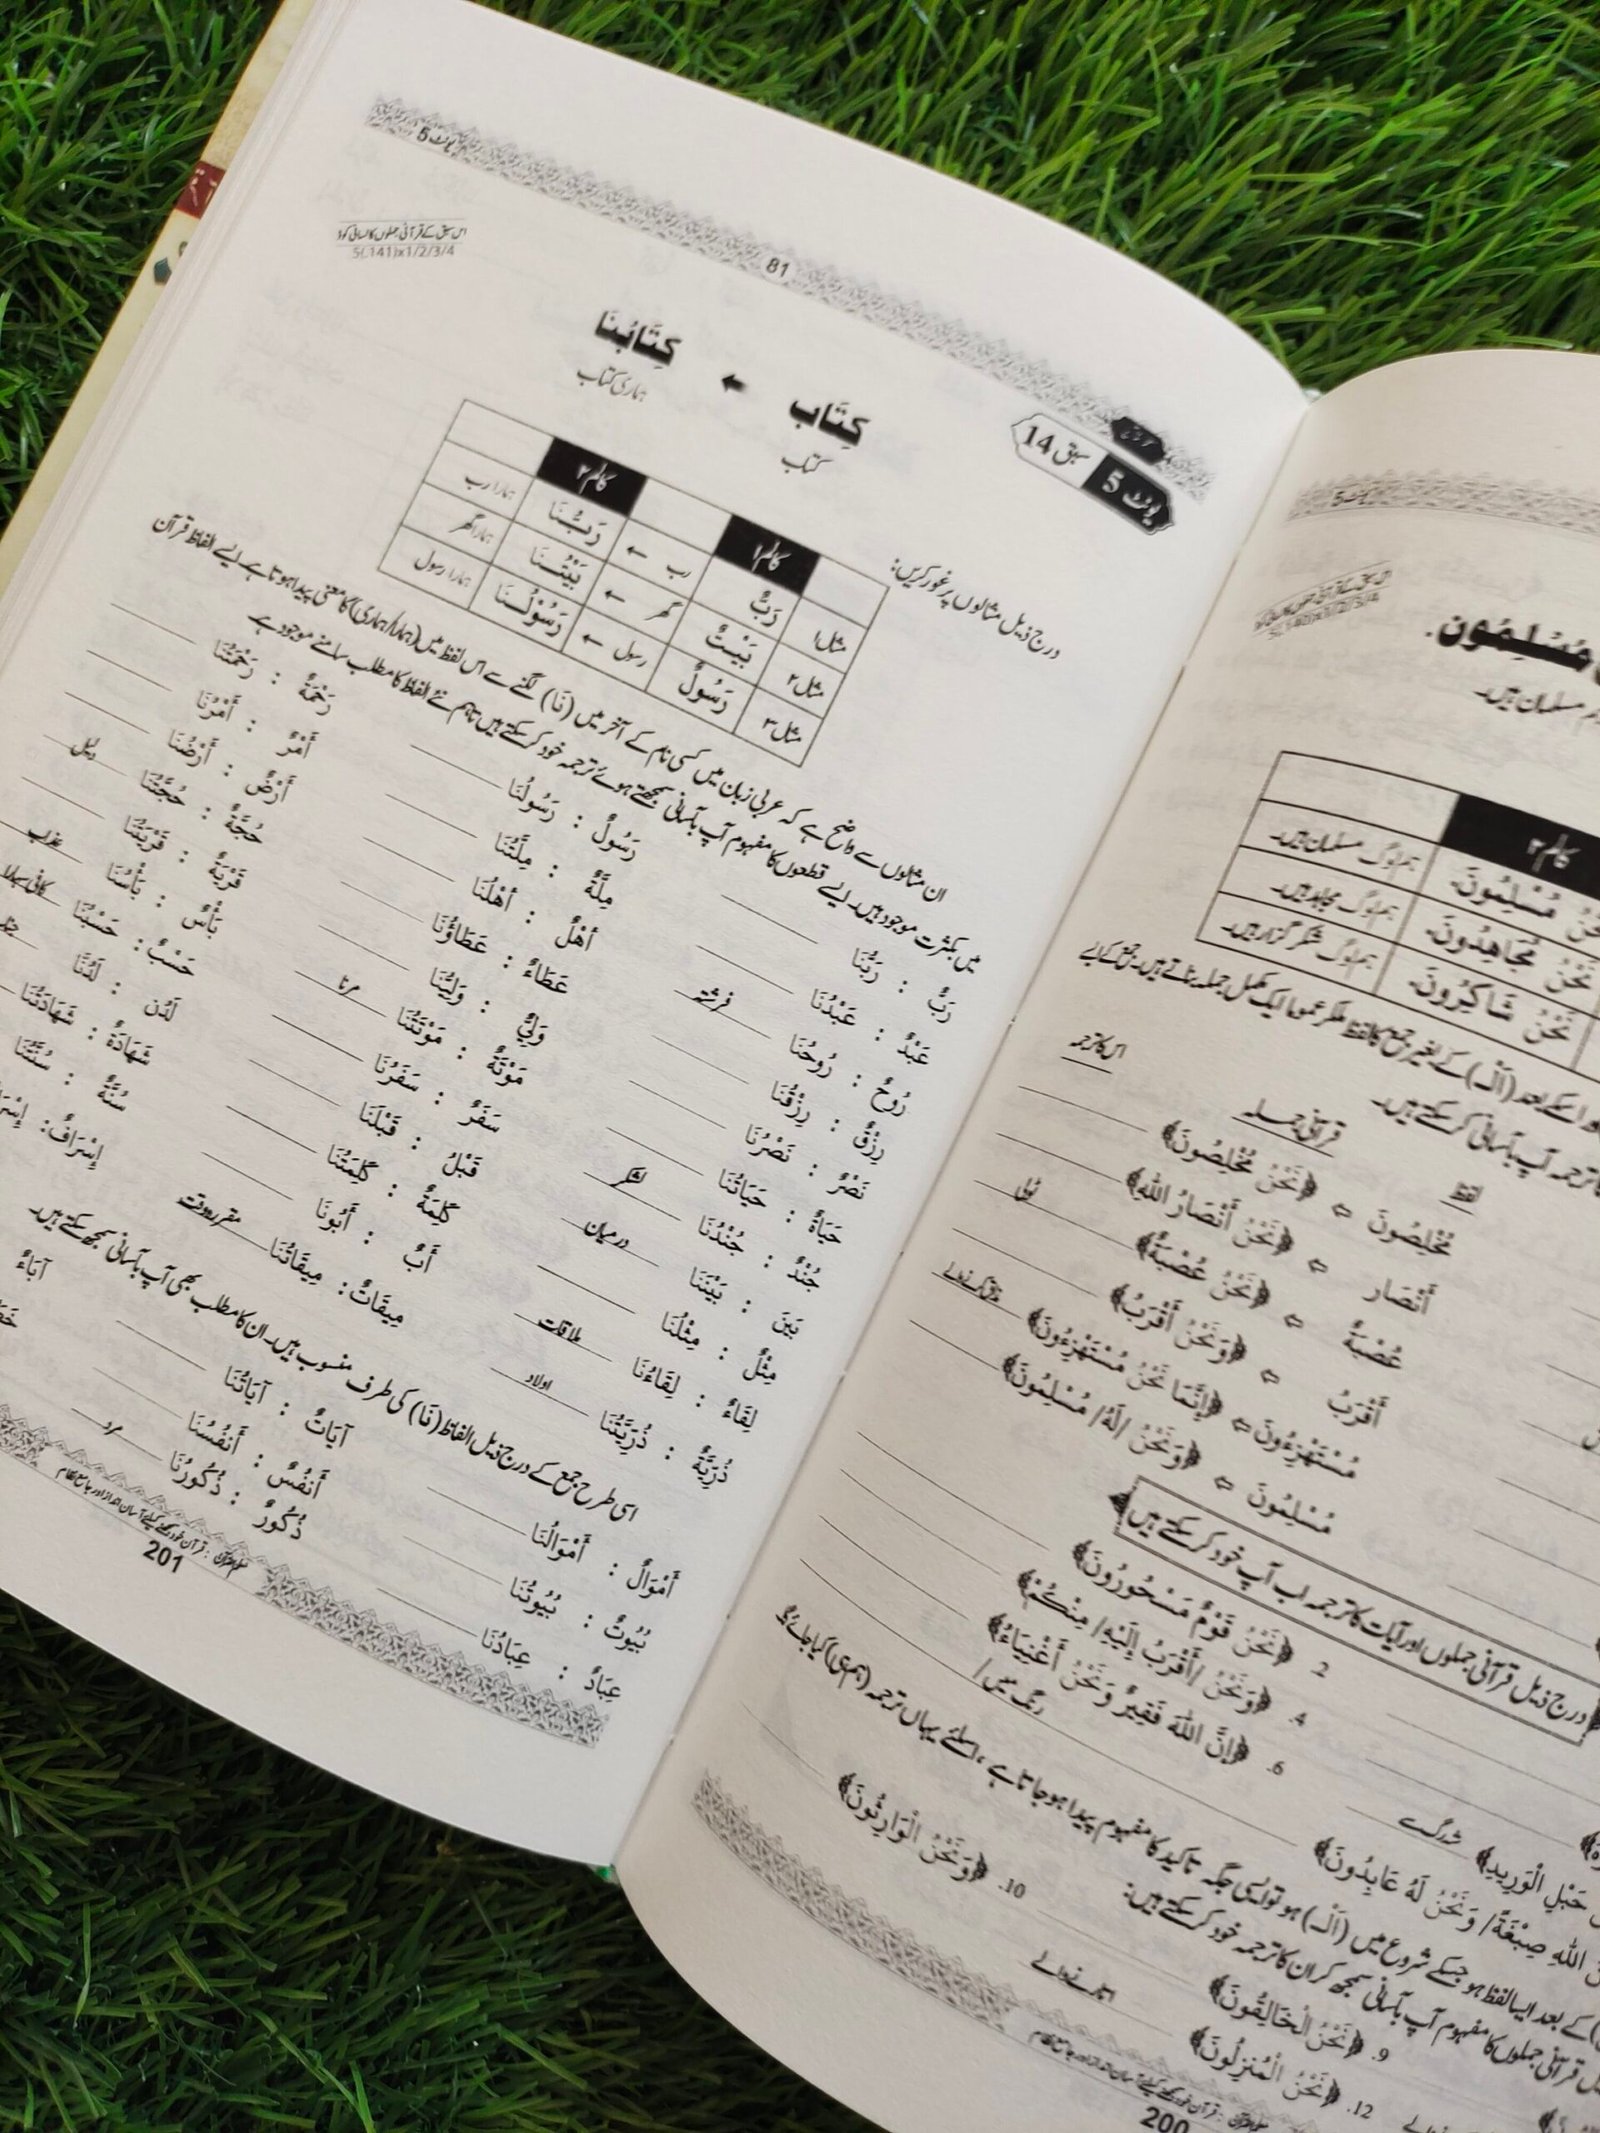 یونٹ 5
81
یونٹ 5 سبق 14
اس سبق کے قرآنی جملوں کا لسانی کوڈ
5(.141)x1/2/3/4
كِتَاب ← كِتَابُنَا
کتاب ہماری کتاب
درج ذیل مثالوں پر غور کریں:
کالم ۱ کالم ۲
مثال ۱ رَبٌّ رب ← رَبُّنَا ہمارا رب
مثال ۲ بَيْتٌ گھر ← بَيْتُنَا ہمارا گھر
مثال ۳ رَسُوْلٌ رسول ← رَسُوْلُنَا ہمارا رسول
ان مثالوں سے واضح ہے کہ عربی زبان میں کسی نام کے آخر میں (نَا) لگنے سے اس لفظ میں (ہمارا/ہماری) کا معنی پیدا ہوتا ہے۔ ایسے الفاظ قرآن
میں بکثرت موجود ہیں۔ ایسے قطعوں کا مفہوم آپ بآسانی سمجھتے ہوئے ترجمہ خود کر سکتے ہیں تاہم نئے الفاظ کا مطلب سامنے موجود ہے۔
رَبٌّ : رَبُّنَا رَسُولٌ : رَسُولُنَا رَحْمَةٌ : رَحْمَتُنَا
عَبْدٌ : عَبْدُنَا مِلَّةٌ : مِلَّتُنَا أَمْرٌ : أَمْرُنَا
رُوحٌ : رُوحُنَا فرشتہ أَهْلٌ : أَهْلُنَا أَرْضٌ : أَرْضُنَا
رِزْقٌ : رِزْقُنَا عَطَاءٌ : عَطَاؤُنَا حُجَّةٌ : حُجَّتُنَا دلیل
نَصْرٌ : نَصْرُنَا وَلِيٌّ : وَلِيُّنَا قَرْيَةٌ : قَرْيَتُنَا
حَيَاةٌ : حَيَاتُنَا مَوْتَةٌ : مَوْتَتُنَا مرنا بَأْسٌ : بَأْسُنَا عذاب
جُنْدٌ : جُنْدُنَا لشکر سَفَرٌ : سَفَرُنَا حَسْبٌ : حَسْبُنَا کافی سہارا
بَيْنَ : بَيْنَنَا درمیان قَبْلُ : قَبْلَنَا لَدُن : لَدُنَّا
مِثْلٌ : مِثْلُنَا كَلِمَةٌ : كَلِمَتُنَا شَهَادَةٌ : شَهَادَتُنَا
لِقَاءٌ : لِقَاءُنَا ملاقات أَبٌ : أَبُونَا سُنَّةٌ : سُنَّتُنَا
ذُرِّيَّةٌ : ذُرِّيَّتُنَا اولاد مِيقَاتٌ : مِيقَاتُنَا مقررہ وقت إِسْرَافٌ :
اسی طرح جمع کے درج ذیل الفاظ (نَا) کی طرف منسوب ہیں۔ ان کا مطلب بھی آپ بآسانی سمجھ سکتے ہیں۔
أَمْوَالٌ : أَمْوَالُنَا آيَاتٌ : آيَاتُنَا آبَاءٌ
بُيُوتٌ : بُيُوتُنَا أَنفُسٌ : أَنفُسُنَا
عِبَادٌ : عِبَادُنَا ذُكُورٌ : ذُكُورُنَا مرد
201
یونٹ 5
اس سبق کے قرآنی جملوں کا لسانی کوڈ
5(.140)x1/2/3/4
مُسْلِمُون.
مسلمان ہیں۔
کالم ۲
نَحْنُ مُسْلِمُونَ. ہم لوگ مسلمان ہیں۔
نَحْنُ مُجَاهِدُونَ. ہم لوگ مجاہد ہیں۔
نَحْنُ شَاكِرُونَ. ہم لوگ شکر گزار ہیں۔
کے بعد (اَلْ) کے بغیر جمع کا لفظ ملکر عموماً ایک مکمل جملہ بناتے ہیں۔
ترجمہ آپ بآسانی کر سکتے ہیں۔
لفظ قرآنی جملہ اس کا ترجمہ
مُخْلِصُونَ ⇦ ﴿نَحْنُ مُخْلِصُونَ﴾
أَنْصَار ⇦ ﴿نَحْنُ أَنْصَارُ اللهِ﴾
عُصْبَةٌ ⇦ ﴿نَحْنُ عُصْبَةٌ﴾ ٹولی
أَقْرَبُ ⇦ ﴿وَنَحْنُ أَقْرَبُ﴾
مُسْتَهْزِءُونَ ⇦ ﴿إِنَّمَا نَحْنُ مُسْتَهْزِءُونَ﴾
مُسْلِمُونَ ⇦ ﴿وَنَحْنُ /لَهُ/ مُسْلِمُونَ﴾
درج ذیل قرآنی جملوں اور آیات کا ترجمہ اب آپ خود کر سکتے ہیں
2. ﴿نَحْنُ قَوْمٌ مَسْحُورُونَ﴾
4. ﴿وَنَحْنُ /أَقْرَبُ إِلَيْهِ/ مِنْكُمْ﴾
6. ﴿إِنَّ اللهَ فَقِيرٌ وَنَحْنُ أَغْنِيَاءُ﴾
حَبْلِ الْوَرِيدِ﴾ شہ رگ سے
اللهِ صِبْغَةً/ وَنَحْنُ لَهُ عَابِدُونَ﴾ رنگ میں/
کے بعد ایسا لفظ ہو جسکے شروع میں (اَلْ) ہو تو ایسی جگہ تاکید کا مفہوم پیدا ہو جاتا ہے، اسلئے یہاں ترجمہ (ہم ہی) کیا جائے گا
قرآنی جملوں کا مفہوم آپ بآسانی سمجھ کر ان کا ترجمہ خود کر سکتے ہیں:
9. ﴿نَحْنُ الْخَالِقُونَ﴾
10. ﴿وَنَحْنُ الْوَارِثُونَ﴾
12. ﴿نَحْنُ الْمُنزِلُونَ﴾ اتارنے والے
200